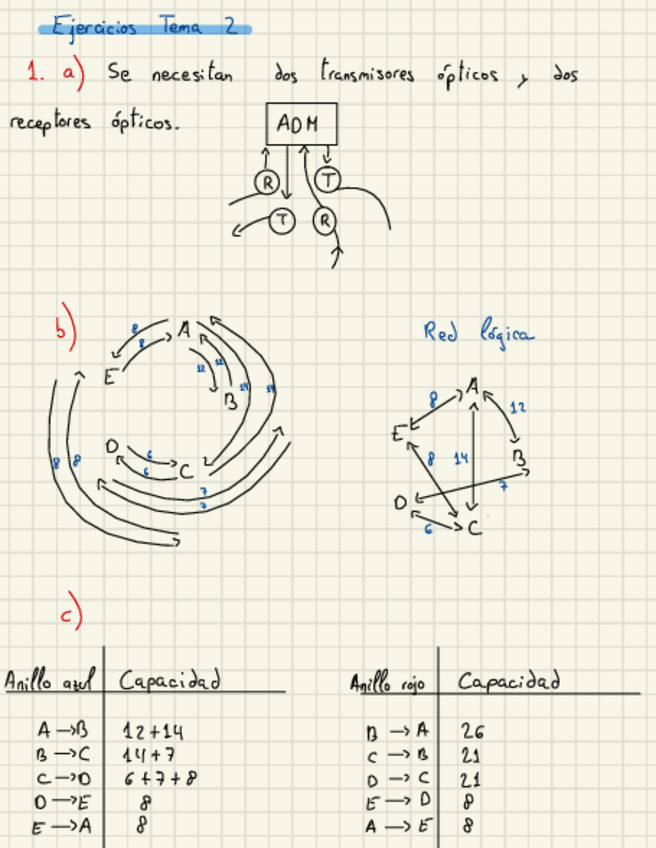 Ejercicios Tema 2
1. a) Se necesitan dos transmisores ópticos y dos
receptores ópticos.
ADM
R T
T R
b)
Red lógica
8 A
8
E
12 12
14 14
B
D 6
6 C
8 8
7
7
A
8 12
E
8 14 B
7
D
6 C
c)
Anillo azul Capacidad
A → B 12+14
B → C 14+7
C → D 6+7+8
D → E 8
E → A 8
Anillo rojo Capacidad
B → A 26
C → B 21
D → C 21
E → D 8
A → E 8